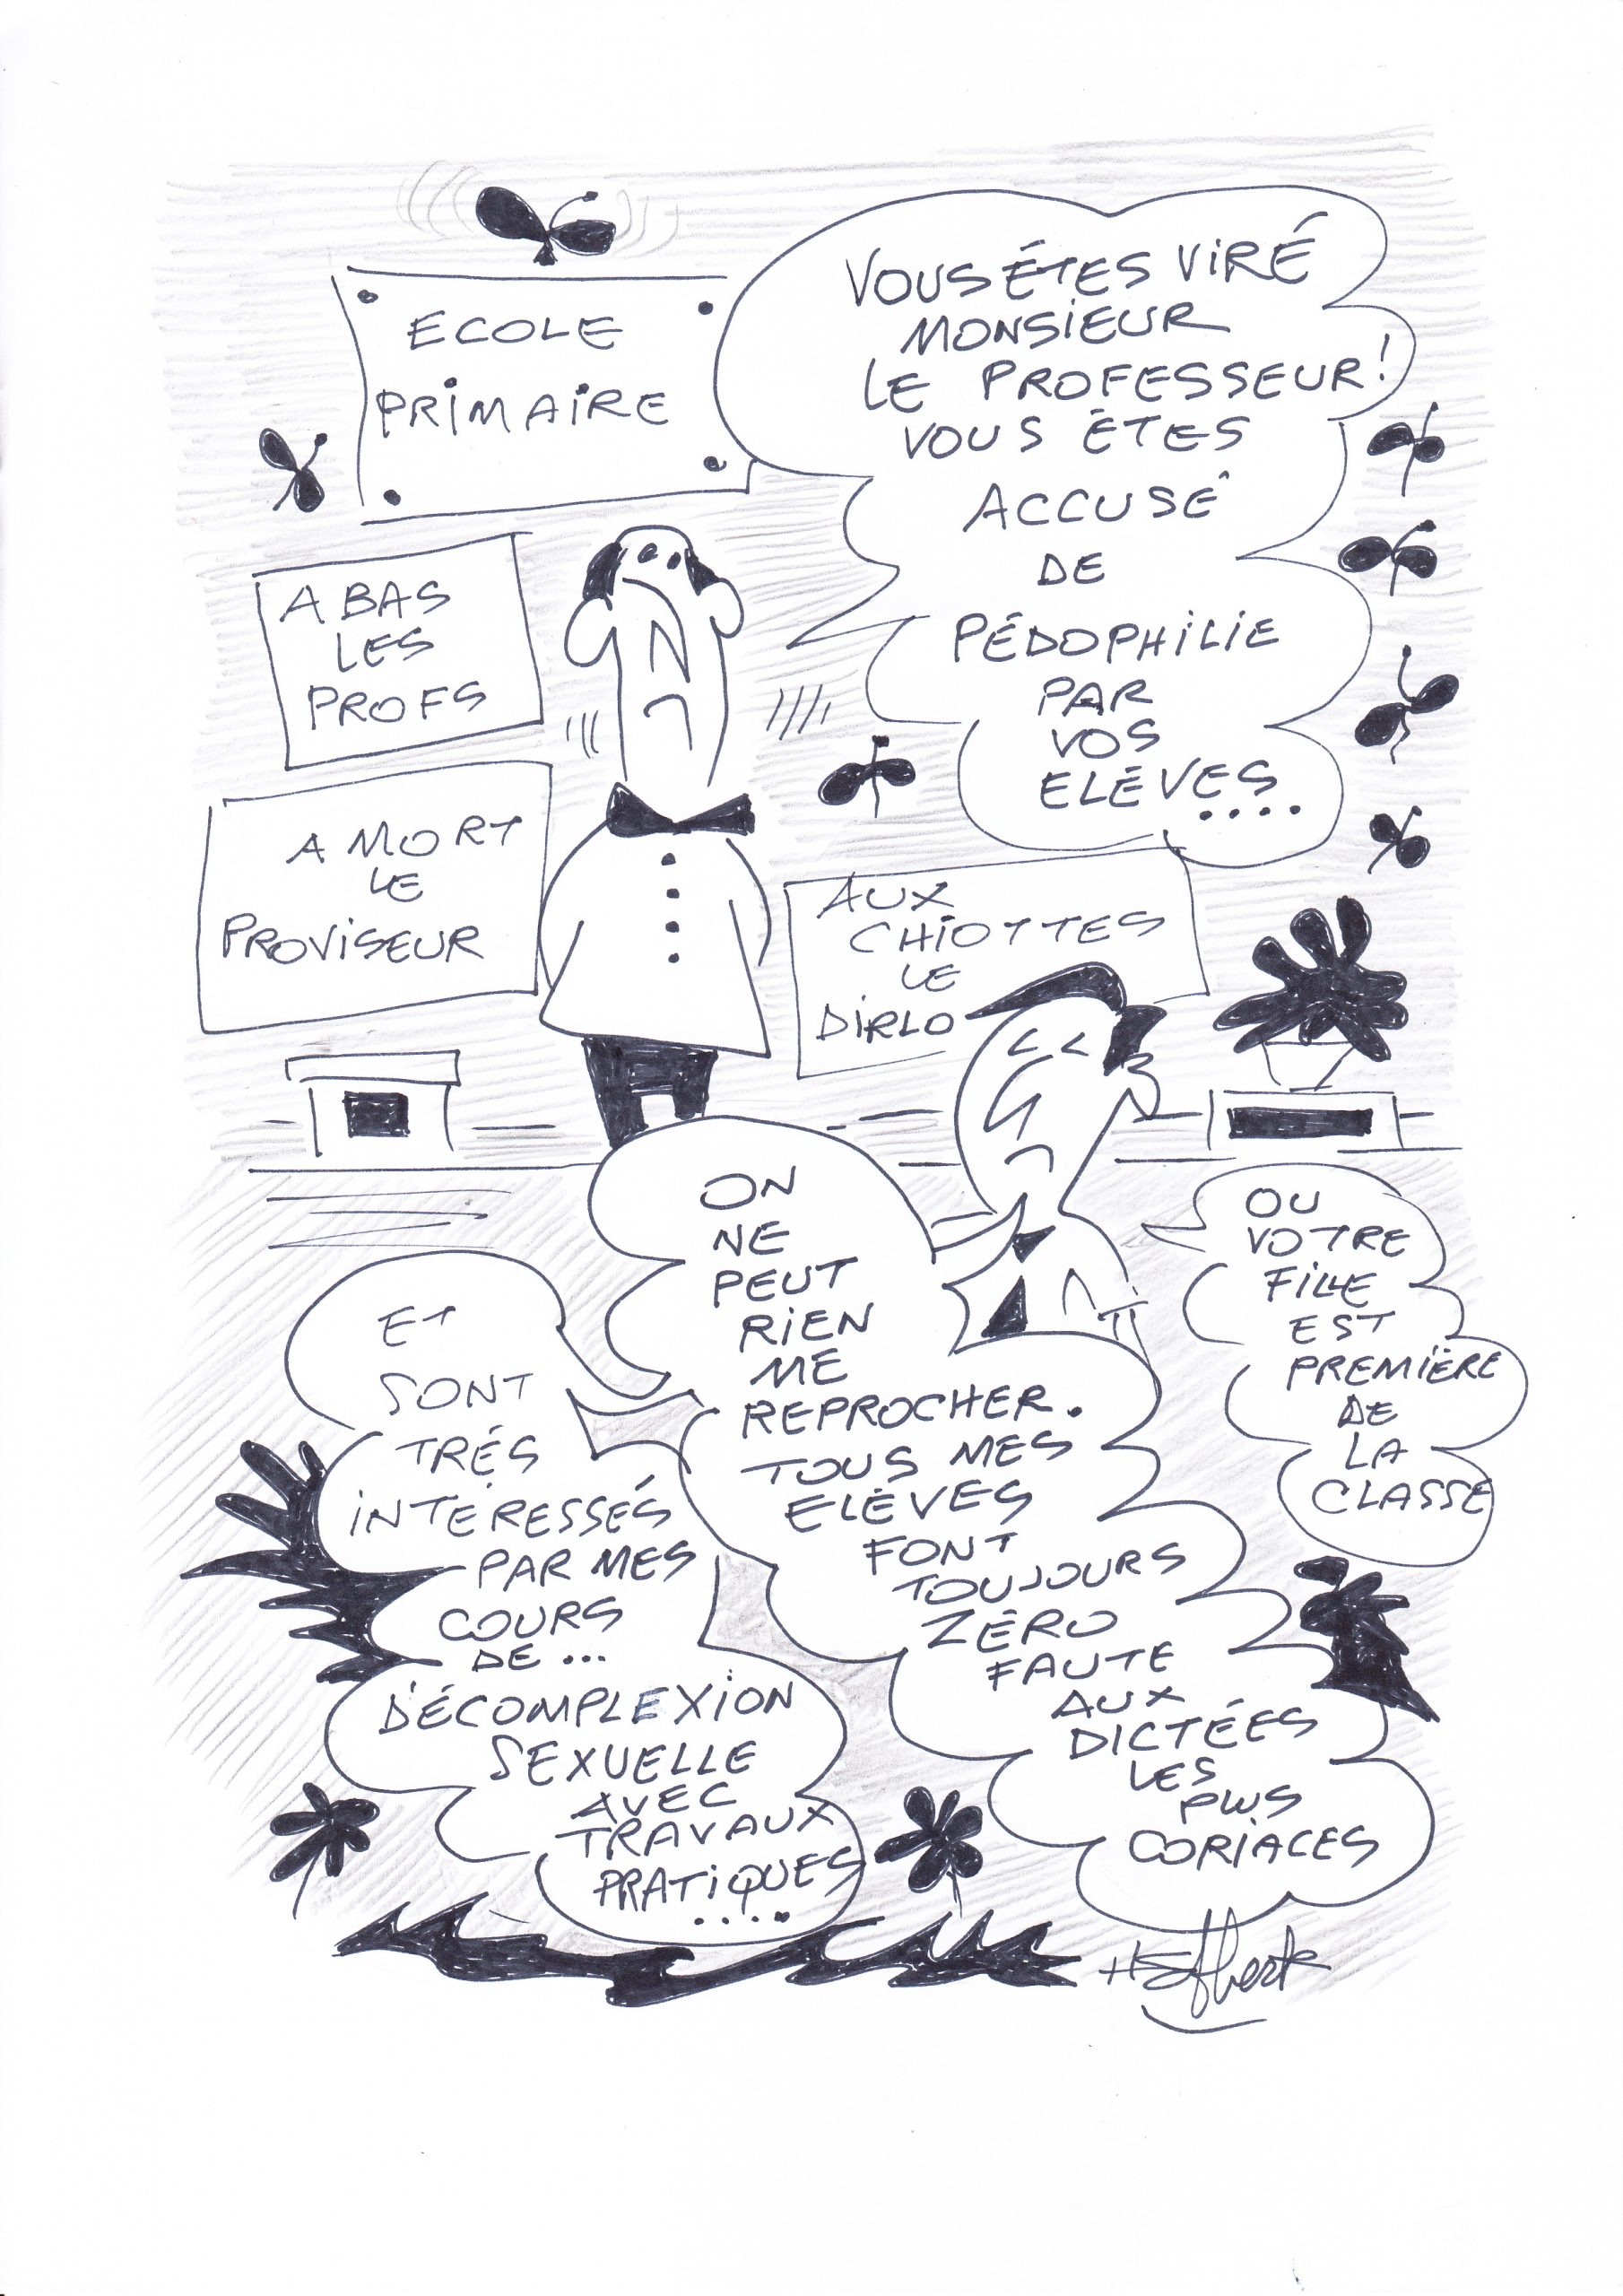 ECOLE
PRIMAIRE
VOUS ÊTES VIRÉ
MONSIEUR
LE PROFESSEUR!
VOUS ÊTES
ACCUSÉ
DE
PÉDOPHILIE
PAR
VOS
ELÈVES....
A BAS
LES
PROFS
A MORT
LE
PROVISEUR
AUX
CHIOTTES
LE
DIRLO
ON
NE
PEUT
RIEN
ME
REPROCHER.
TOUS MES
ELÈVES
FONT
TOUJOURS
ZÉRO
FAUTE
AUX
DICTÉES
LES
PLUS
CORIACES
OU
VOTRE
FILLE
EST
PREMIÈRE
DE
LA
CLASSE
ET
SONT
TRÉS
INTERESSÉS
PAR MES
COURS
DE...
DÉCOMPLEXION
SEXUELLE
AVEC
TRAVAUX
PRATIQUES
....